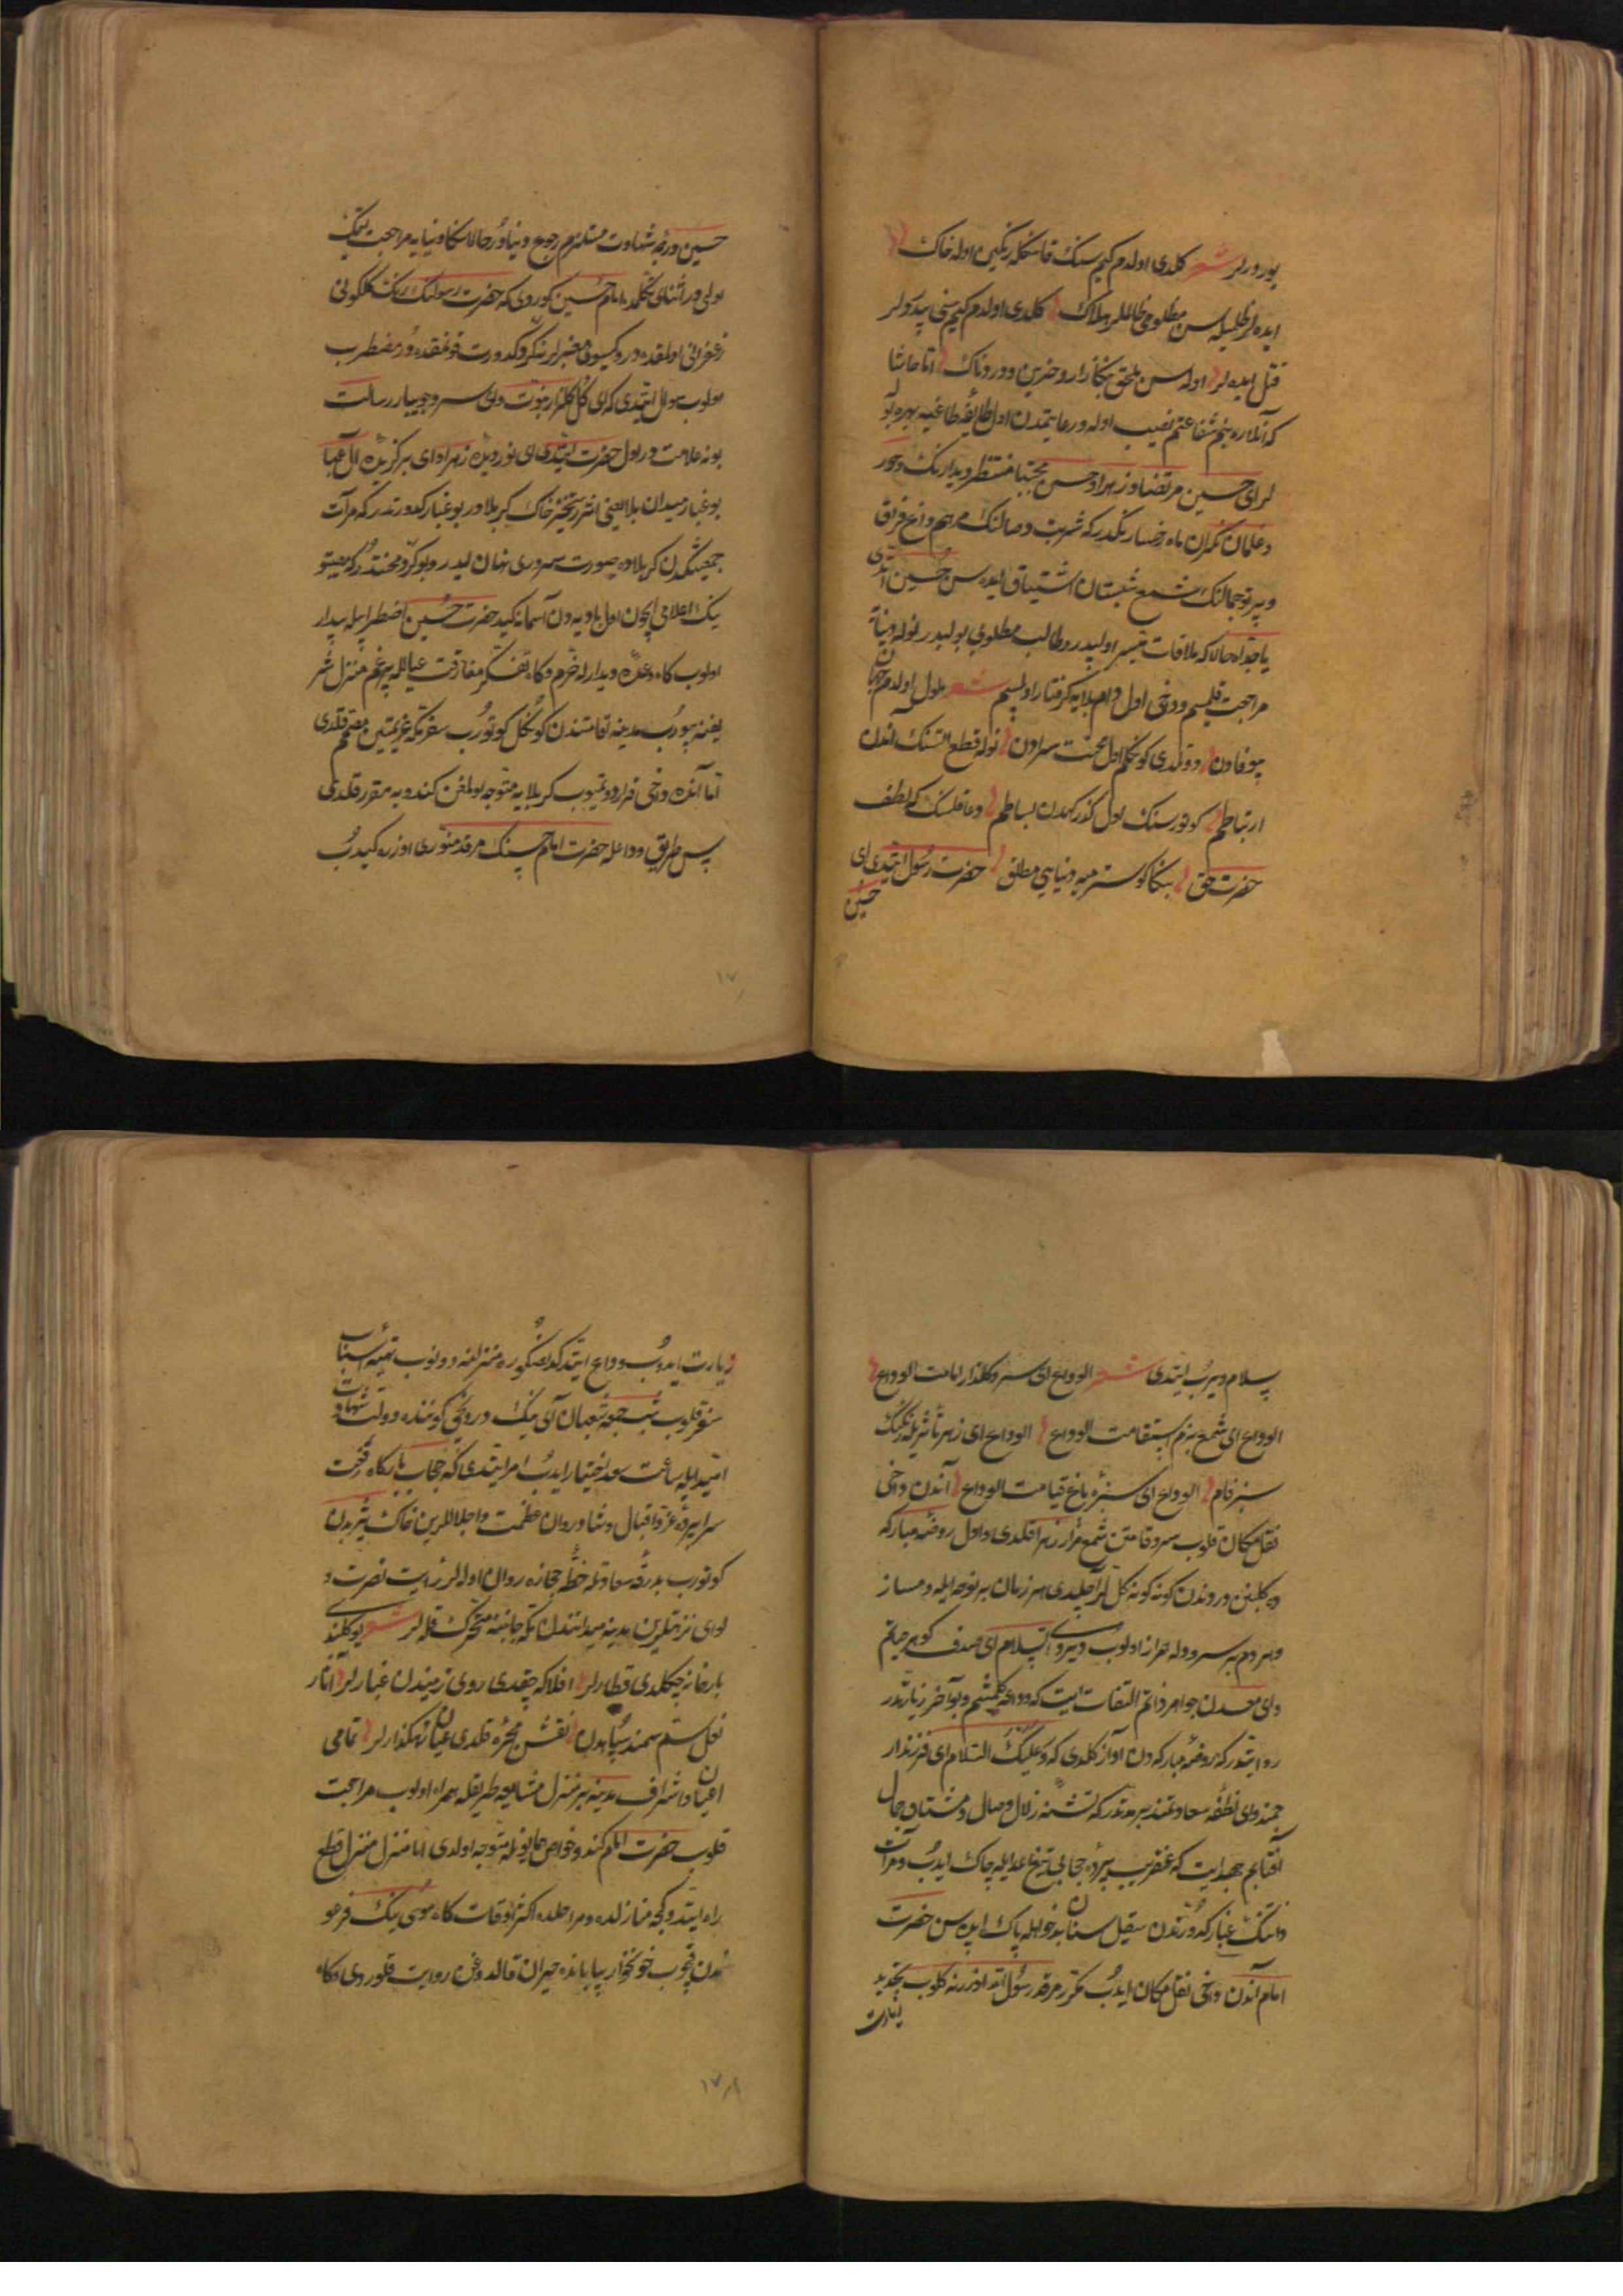 یورورلر شعر کلدی اولدم کیم سنک قانکله رنکین اوله خاک
ایده لر ظلمیله سن مظلومی ظالملر هلاک کلدی اولدم کیم سنی بیدولر
قتل ایده لر اوله سن ملحق بکا زار و حزین و دردناک اما حاشا
که آنلره بنم شفاعتم نصیب اوله و رعایتمدن اول طایفه طاغیه بهره بولـ
لر ای حسین مرتضا و زهرا و حسن مجتبا منتظر دیدارنک و حور
و غلمان نکران ماه رخسارنکدر که شربت وصالنک مرهم داغ فراق
و پرتو جمالنک شمع شبستان اشتیاق ایده سن حسین ایتدی
یا جداه حالا که ملاقات میسر اولپدر و طالب مطلوبی بولپدر نوله دنیایه
مراجعت قلمیم و دخی اول دام بلایه کرفتار اولمیم شعر ملول اولدم جهان
بیوفادن دوتلدی کوکلم اول محنت سرادن نوله قطع ایتسنک آندن
ارتباطم کوتورسنک اول کذرکهدن بساطم دعا قلسنک که لطف
حضرت حق بکا کوسترمیه دنیایی مطلق حضرت رسول ایتدی ای
حسین
حسین درجه شهادت مستلزم رجوع دنیادر حالا سکا دنیایه مراجعت ایتمک
اولی در اثنای تکلمده امام حسین کوردی که حضرت رسولنک رنک کلکونی
زعفرانی اولمقده در و کیسوی معنبرلرینه کرد کدورت قونمقده در مضطرب
اولوب سوال ایتدی که ای کل کلزار نبوت وای سرو جویبار رسالت
بو نه علامت در اول حضرت ایتدی ای نور دیده زهرا و ای برکزیده آل عبا
بو غبار میدان بلا یعنی اثر رستخیز خاک کربلا در بو غبار کدورتدر که مرآت
جمعیتکدن کربلاده صورت سروری نهان ایدر و بو کرد محنتدر که معیتو
نک اعلامی ایچون اول بادیه دن آسمانه کیدر حضرت حسین اضطرابیله بیدار
اولوب کاه وعده دیدارله خرم و کاه تفکر مفارقت عیالله پرغم منزل شر
یفنه بیورب مدینه اقامتندن کوکل کوتورب سفر مکه عزیمتین مصمم قلدی
اما آنده دخی قرار دوتمیوب کربلایه متوجه اولمغن کندویه مقرر قلدی
پس طریق وداعله حضرت امام حسنک مرقد منوری اوزره کیدرب
سلام ویرب ایتدی شعر الوداع ای سرو کلزار امامت الوداع
الوداع ای شمع بزم استقامت الوداع الوداع ای زهر تأثیریله رنکنک
سبز فام الوداع ای سبزه باغ قیامت الوداع آندن داخی
نقل مکان قلوب سرو قامتن شمع مزار زهرا قلدی و اول روضه مبارکه
ده کلبن دروندن کونه کونه کل لر آچلیدی هر زمان بر نوحه ایله دمساز
و هر دم بر سرودله همراز اولوب دیردی السلام ای صدف کوهر حیاتم
و ای معدن جواهر ذاتم التفات ایت که وداعه کلمشم و بو آخر زیارتدر
روایتدر که روضه مبارکه دن آواز کلدی که و علیک السلام ای فرزند ار
جمند و ای نطفه سعادتمند بر مدتدر که تشنه زلال وصال و مشتاق جمال
آفتابم جهد ایت که عنقریب پرده حجابی تیغ اعدایله چاک ایدب و مرآت
ذاتنک غبار کدورتدن صیقل سنان بدخواهله پاک ایده سن حضرت
امام آندن داخی نقل مکان ایدب مکرر مرقد رسول الله اوزرنه کلوب تجدید
زیارت
زیارت ایدوب وداع ایتدکدنصکره منزلنه دونوب تهیه اسباب
سفر قلوب شب جمعه شعبان آی نک دردنجی کوننده دولت شهادت
امیدیله ساعت سعد اختیار ایدب امر ایتدی که حجاب بارکاه رفعت
سراپرده عز و اقبال و شادروان عظمت و اجلاللرین خاک یثربدن
کوتورب بدرقه سعادتله خطه حجازه روان اوله لر رایت نصرت و
لوای نزهتلرین مدینه میدانندن مکه جانبنه متحرک قله لر شعر یوکلندی
بارخانه چکلدی قطارلر افلاکه چقدی روی زمیندن غبارلر آثار
نعل سم سمند سپاهدن نقش مجره قلدی عیان رهکذارلر تمامی
اعیان و اشراف مدینه بر منزل مشایعه طریقله همراه اولوب مراجعت
قلوب حضرت امام کندو خواص همایونله متوجه اولدی اما منزل منزل قطع
راه ایتدوکجه منازلده و مراحلده اکثر اوقات کاه موسی نک فرعو
ندن قچوب خونخوار بیابانده حیران قالدوغن روایت قلوردی و کاه
۱۷